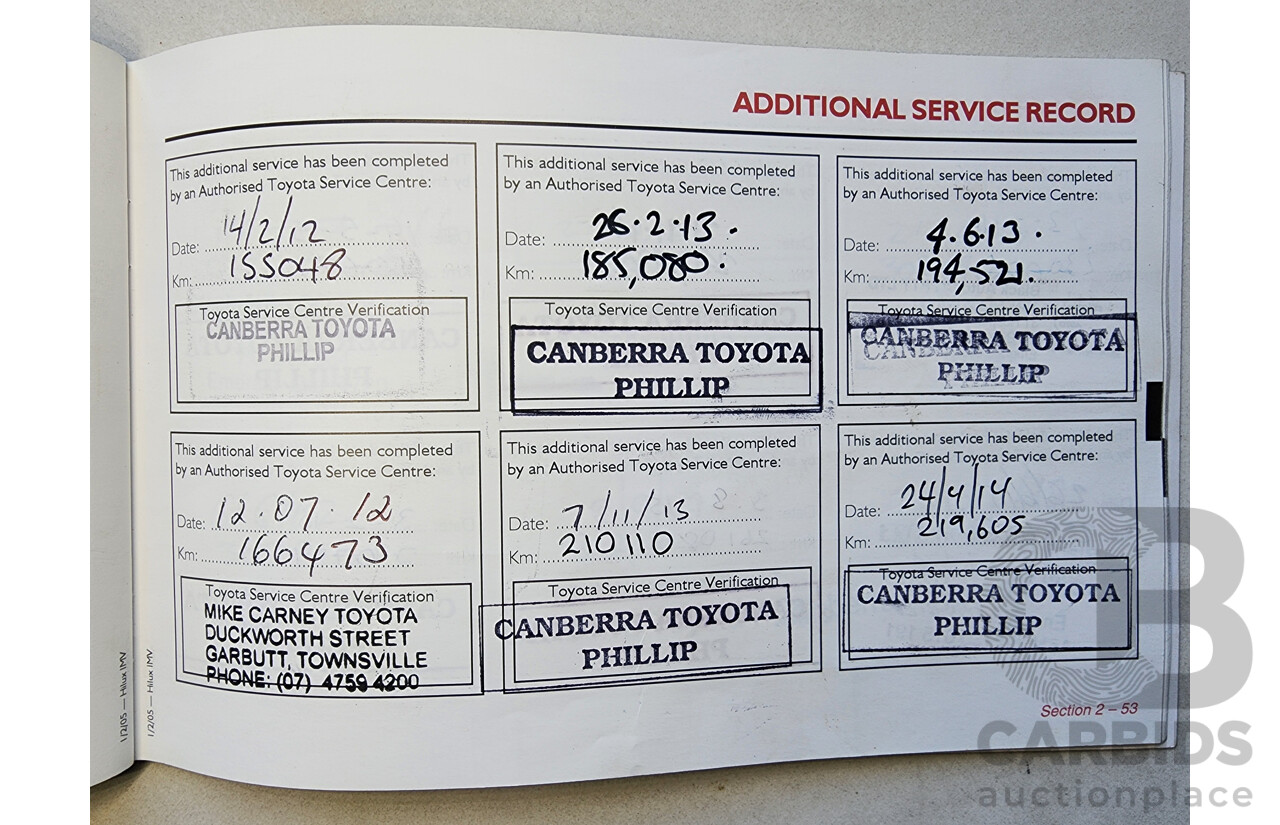 ADDITIONAL SERVICE RECORD
This additional service has been completed
by an Authorised Toyota Service Centre:
Date: 14/2/12
Km: 155048
Toyota Service Centre Verification
CANBERRA TOYOTA
PHILLIP
This additional service has been completed
by an Authorised Toyota Service Centre:
Date: 26.2.13.
Km: 185,080.
Toyota Service Centre Verification
CANBERRA TOYOTA
PHILLIP
This additional service has been completed
by an Authorised Toyota Service Centre:
Date: 4.6.13.
Km: 194,521.
Toyota Service Centre Verification
CANBERRA TOYOTA
PHILLIP
This additional service has been completed
by an Authorised Toyota Service Centre:
Date: 12.07.12
Km: 166473
Toyota Service Centre Verification
MIKE CARNEY TOYOTA
DUCKWORTH STREET
GARBUTT, TOWNSVILLE
PHONE: (07) 4759 4200
This additional service has been completed
by an Authorised Toyota Service Centre:
Date: 7/11/13
Km: 210110
Toyota Service Centre Verification
CANBERRA TOYOTA
PHILLIP
This additional service has been completed
by an Authorised Toyota Service Centre:
Date: 24/4/14
Km: 219,605
Toyota Service Centre Verification
CANBERRA TOYOTA
PHILLIP
Section 2 – 53
1/2/05 — Hilux IMV
1/2/05 — Hilux IMV
CARBIDS
auctionplace